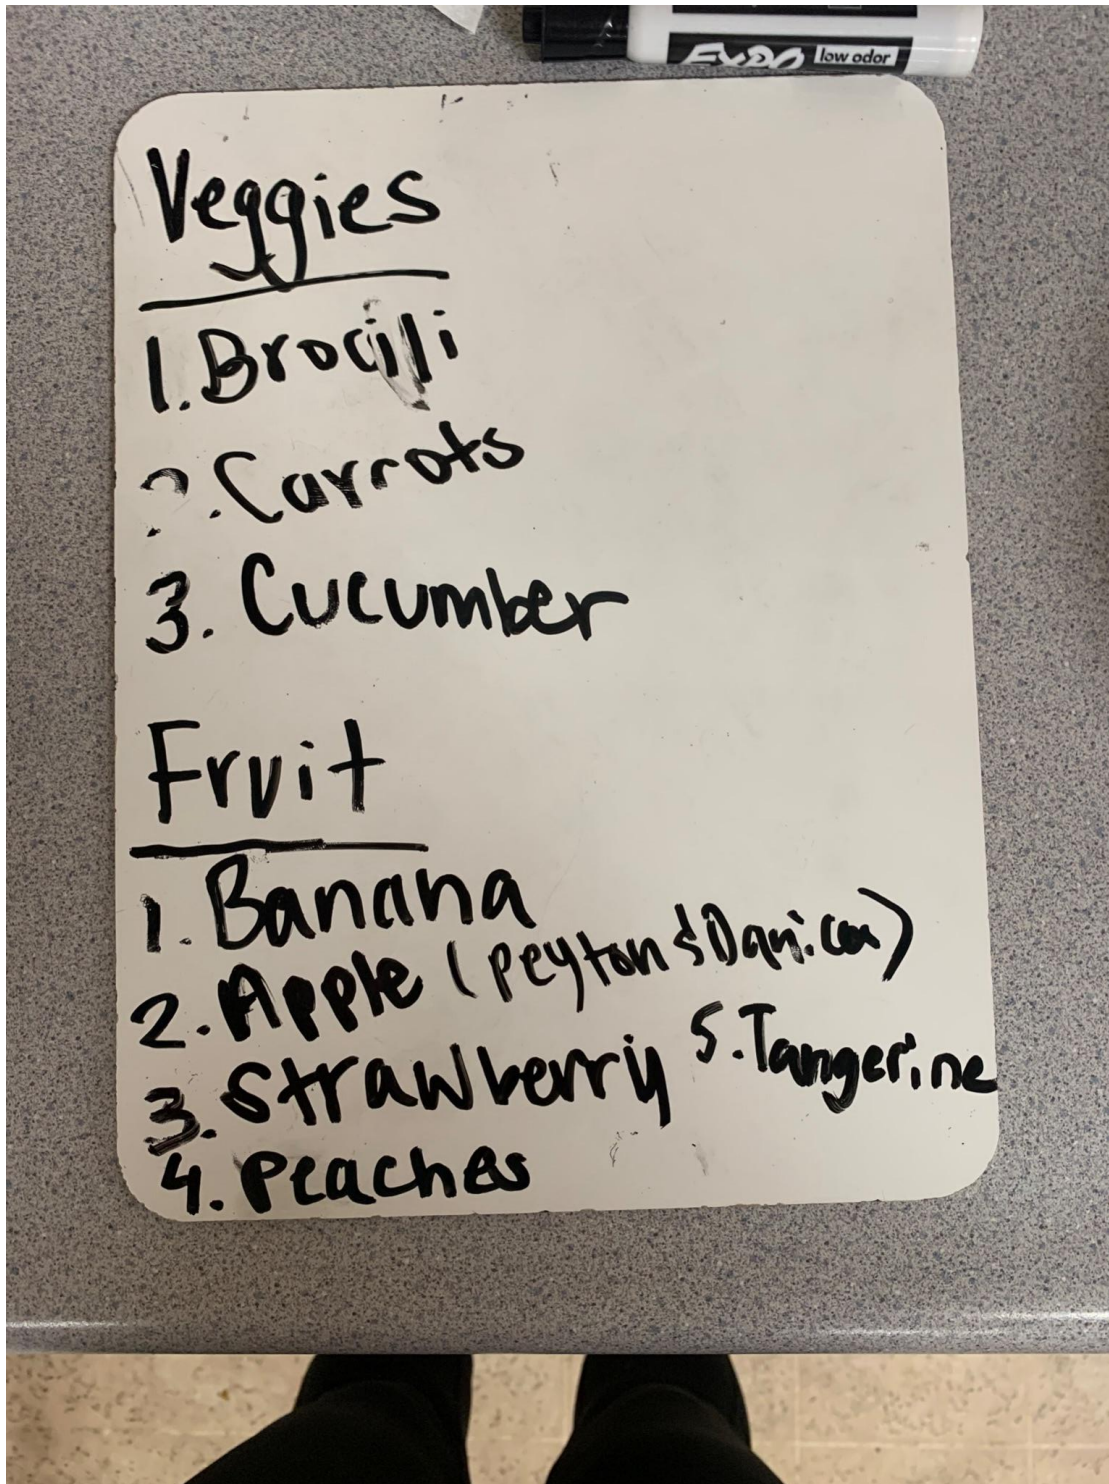 EXPO low odor
Veggies
1. Brocili
2. Carrots
3. Cucumber
Fruit
1. Banana
2. Apple (Peyton & Danica)
3. Strawberry
5. Tangerine
4. Peaches